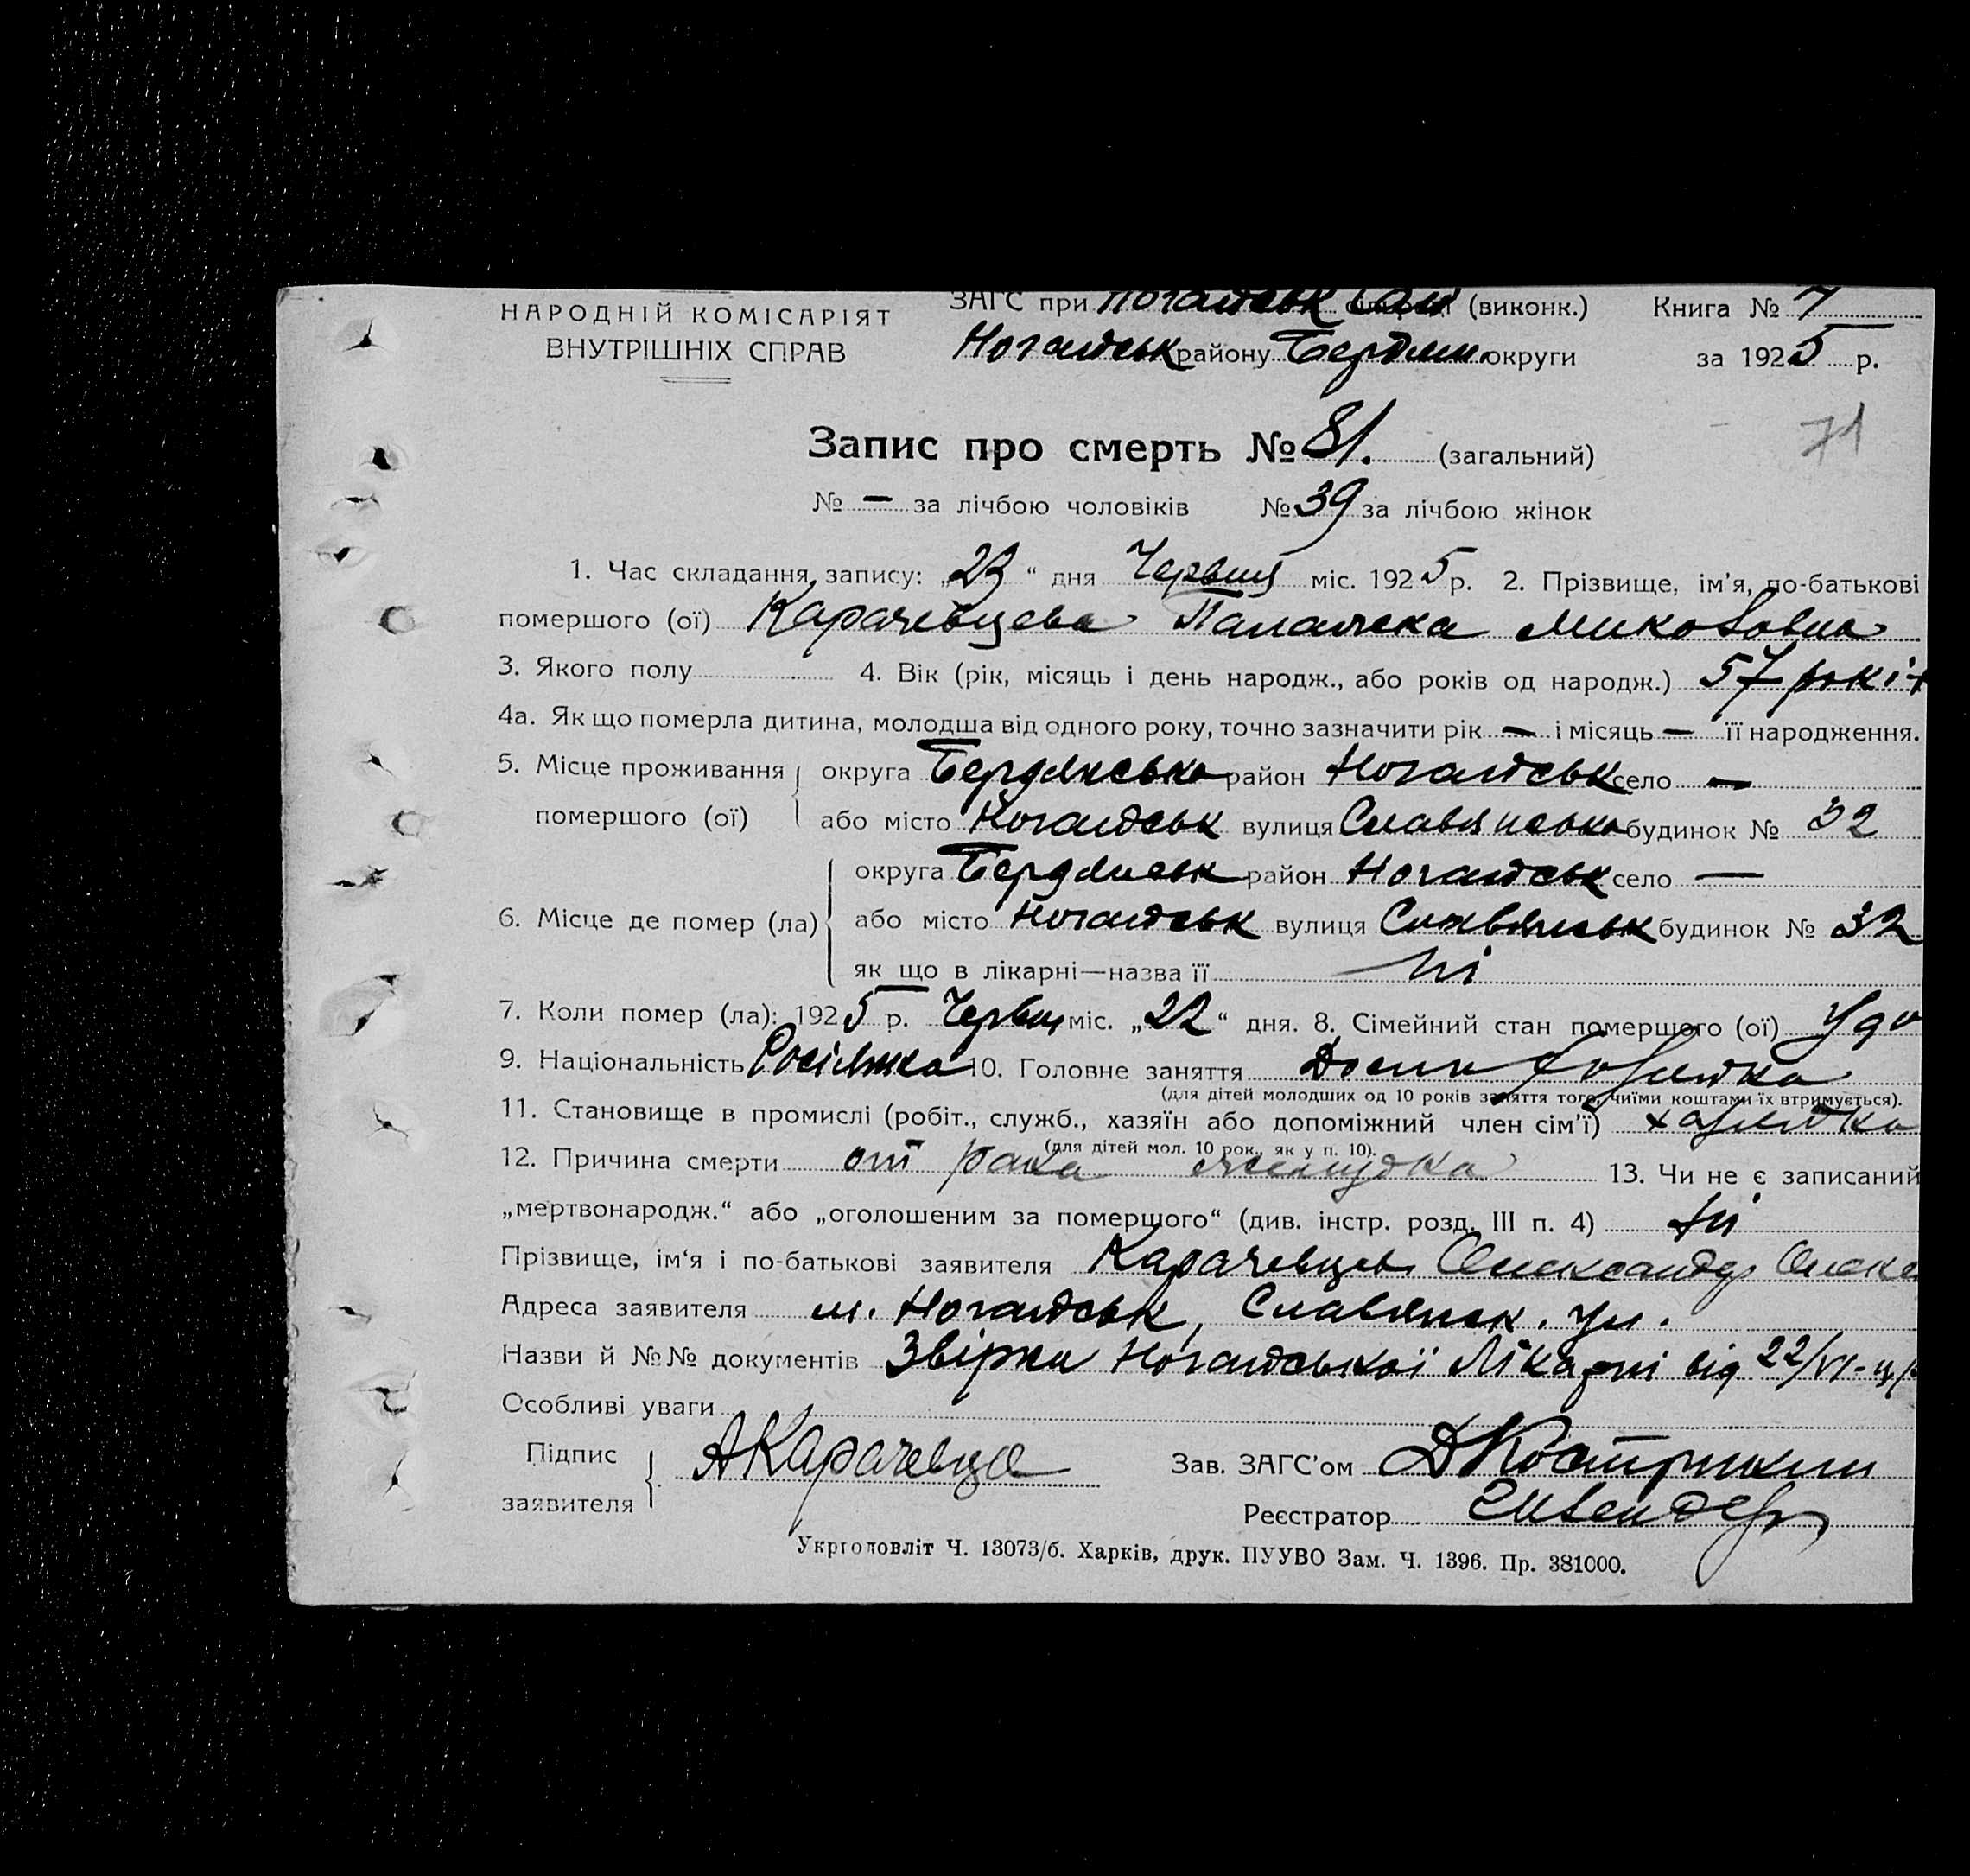 НАРОДНІЙ КОМІСАРІЯТ
ВНУТРІШНІХ СПРАВ
ЗАГС при Ногайськ (виконк.)
Ногайськ району Бердян. округи
Книга № 7
за 1925 р.
71
Запис про смерть № 81. (загальний)
№ — за лічбою чоловіків № 39 за лічбою жінок
1. Час складання запису: „23“ дня Червня міс. 1925 р. 2. Прізвище, ім'я, по-батькові
помершого (ої) Карачевцева Палажка Миковна
3. Якого полу 4. Вік (рік, місяць і день народж., або років од народж.) 57 років
4а. Як що померла дитина, молодша від одного року, точно зазначити рік — і місяць — її народження.
5. Місце проживання округа Бердянська район Ногайськ село —
помершого (ої) або місто Ногайськ вулиця Славянська будинок № 32
округа Бердянськ район Ногайськ село —
6. Місце де помер (ла) або місто Ногайськ вулиця Славянськ будинок № 32
як що в лікарні—назва її ні
7. Коли помер (ла): 1925 р. Червня міс. „22“ дня. 8. Сімейний стан помершого (ої) Удо
9. Національність Росіянка 10. Головне заняття Домохозяйка
(для дітей молодших од 10 років заняття того, чиїми коштами їх втримується).
11. Становище в промислі (робіт., служб., хазяїн або допоміжний член сім'ї) хазяйка
(для дітей мол. 10 рок., як у п. 10).
12. Причина смерти от рака желудка 13. Чи не є записаний
„мертвонародж.“ або „оголошеним за помершого“ (див. інстр. розд. III п. 4) ні
Прізвище, ім'я і по-батькові заявителя Карачевцев Олександр Олекс
Адреса заявителя м. Ногайськ, Славянск. ул.
Назви й №№ документів Звірка Ногайської Лікарні від 22/VI-ц/р
Особливі уваги
Підпис
заявителя АКарачевцо
Зав. ЗАГС'ом ДКострикин
Реєстратор
Укрголовліт Ч. 13073/б. Харків, друк. ПУУВО Зам. Ч. 1396. Пр. 381000.